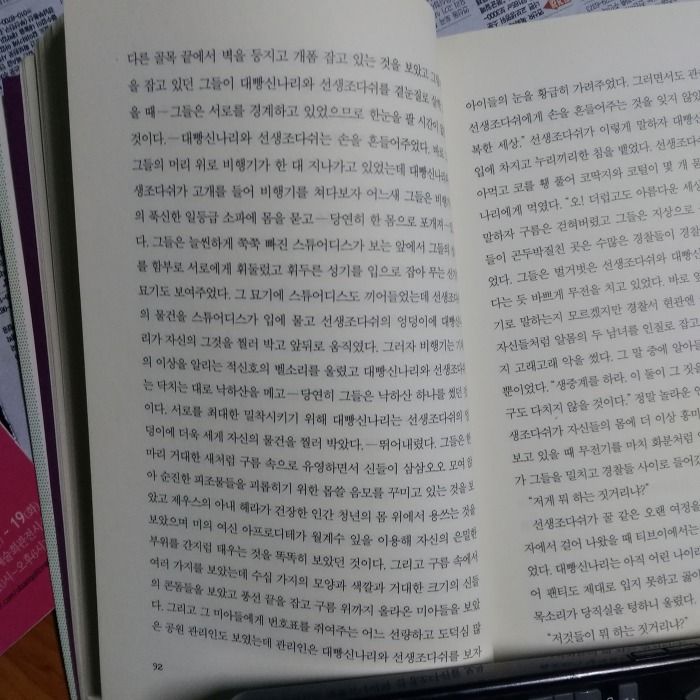 다른 골목 끝에서 벽을 등지고 개폼 잡고 있는 것을 보았고
을 잡고 있던 그들이 대빵신나리와 선생조다쉬를 곁눈질로
을 때—그들은 서로를 경계하고 있었으므로 한눈을 팔 시간이
것이다.—대빵신나리와 선생조다쉬는 손을 흔들어주었다.
그들의 머리 위로 비행기가 한 대 지나가고 있었는데 대빵신나리
생조다쉬가 고개를 들어 비행기를 쳐다보자 어느새 그들은 비행기
의 푹신한 일등급 소파에 몸을 묻고—당연히 한 몸으로 포개져
다. 그들은 늘씬하게 쭉쭉 빠진 스튜어디스가 보는 앞에서 그들의
를 함부로 서로에게 휘둘렀고 휘두른 성기를 입으로 잡아 무는
묘기도 보여주었다. 그 묘기에 스튜어디스도 끼어들었는데 선생조
의 물건을 스튜어디스가 입에 물고 선생조다쉬의 엉덩이에 대빵
리가 자신의 그것을 찔러 박고 앞뒤로 움직였다. 그러자 비행기는
의 이상을 알리는 적신호의 벨소리를 울렸고 대빵신나리와 선생조
는 닥치는 대로 낙하산을 메고—당연히 그들은 낙하산 하나를 썼던
이다. 서로를 최대한 밀착시키기 위해 대빵신나리는 선생조다쉬의
덩이에 더욱 세게 자신의 물건을 찔러 박았다.—뛰어내렸다. 그들은
마리 거대한 새처럼 구름 속으로 유영하면서 신들이 삼삼오오 모여
아 순진한 피조물들을 괴롭히기 위한 몹쓸 음모를 꾸미고 있는 것을
았고 제우스의 아내 헤라가 건장한 인간 청년의 몸 위에서 용쓰는 것을
보았으며 미의 여신 아프로디테가 월계수 잎을 이용해 자신의 은밀한
부위를 간지럼 태우는 것을 똑똑히 보았던 것이다. 그리고 구름 속에서
여러 가지를 보았는데 수십 가지의 모양과 색깔과 거대한 크기의 신들
의 콘돔들을 보았고 풍선 끝을 잡고 구름 위까지 올라온 미아들을 보았
다. 그리고 그 미아들에게 번호표를 쥐여주는 어느 선량하고 도덕심 많
은 공원 관리인도 보였는데 관리인은 대빵신나리와 선생조다쉬를 보자
92
아이들의 눈을 황급히 가려주었다. 그러면서도 관
선생조다쉬에게 손을 흔들어주는 것을 잊지 않았
복한 세상." 선생조다쉬가 이렇게 말하자 대빵신
입에 차지고 누리끼리한 침을 뱉었다. 선생조
아먹고 코를 팽 풀어 코딱지와 코털이 몇 개
나리에게 먹였다. "오! 더럽고도 아름다운 세상
말하자 구름은 걷혀버렸고 그들은 지상으로
들이 곤두박질친 곳은 수많은 경찰들이 경찰
었다. 그들은 벌거벗은 선생조다쉬와 대빵신
다는 듯 바쁘게 무전을 치고 있었다. 바로
기로 말하는지 모르겠지만 경찰서 현관엔
자신들처럼 알몸의 두 남녀를 인질로 잡고
지 고래고래 악을 썼다. 그 말 중에 알아들
뿐이었다. "생중계를 하라. 이 둘이 그 짓을
구도 다치지 않을 것이다." 정말 놀라운
생조다쉬가 자신들의 몸에 더 이상 흥미
보고 있을 때 무전기를 마치 화분처럼
가 그들을 밀치고 경찰들 사이로 들어갔
"저게 뭐 하는 짓거리냐?"
선생조다쉬가 꿀 같은 오랜 여정을
자에서 걸어 나왔을 때 티브이에서는
었다. 대빵신나리는 아직 어린 나이
어 팬티도 제대로 입지 못하고
목소리가 당직실을 텅하니 울렸다.
"저것들이 뭐 하는 짓거리냐?"